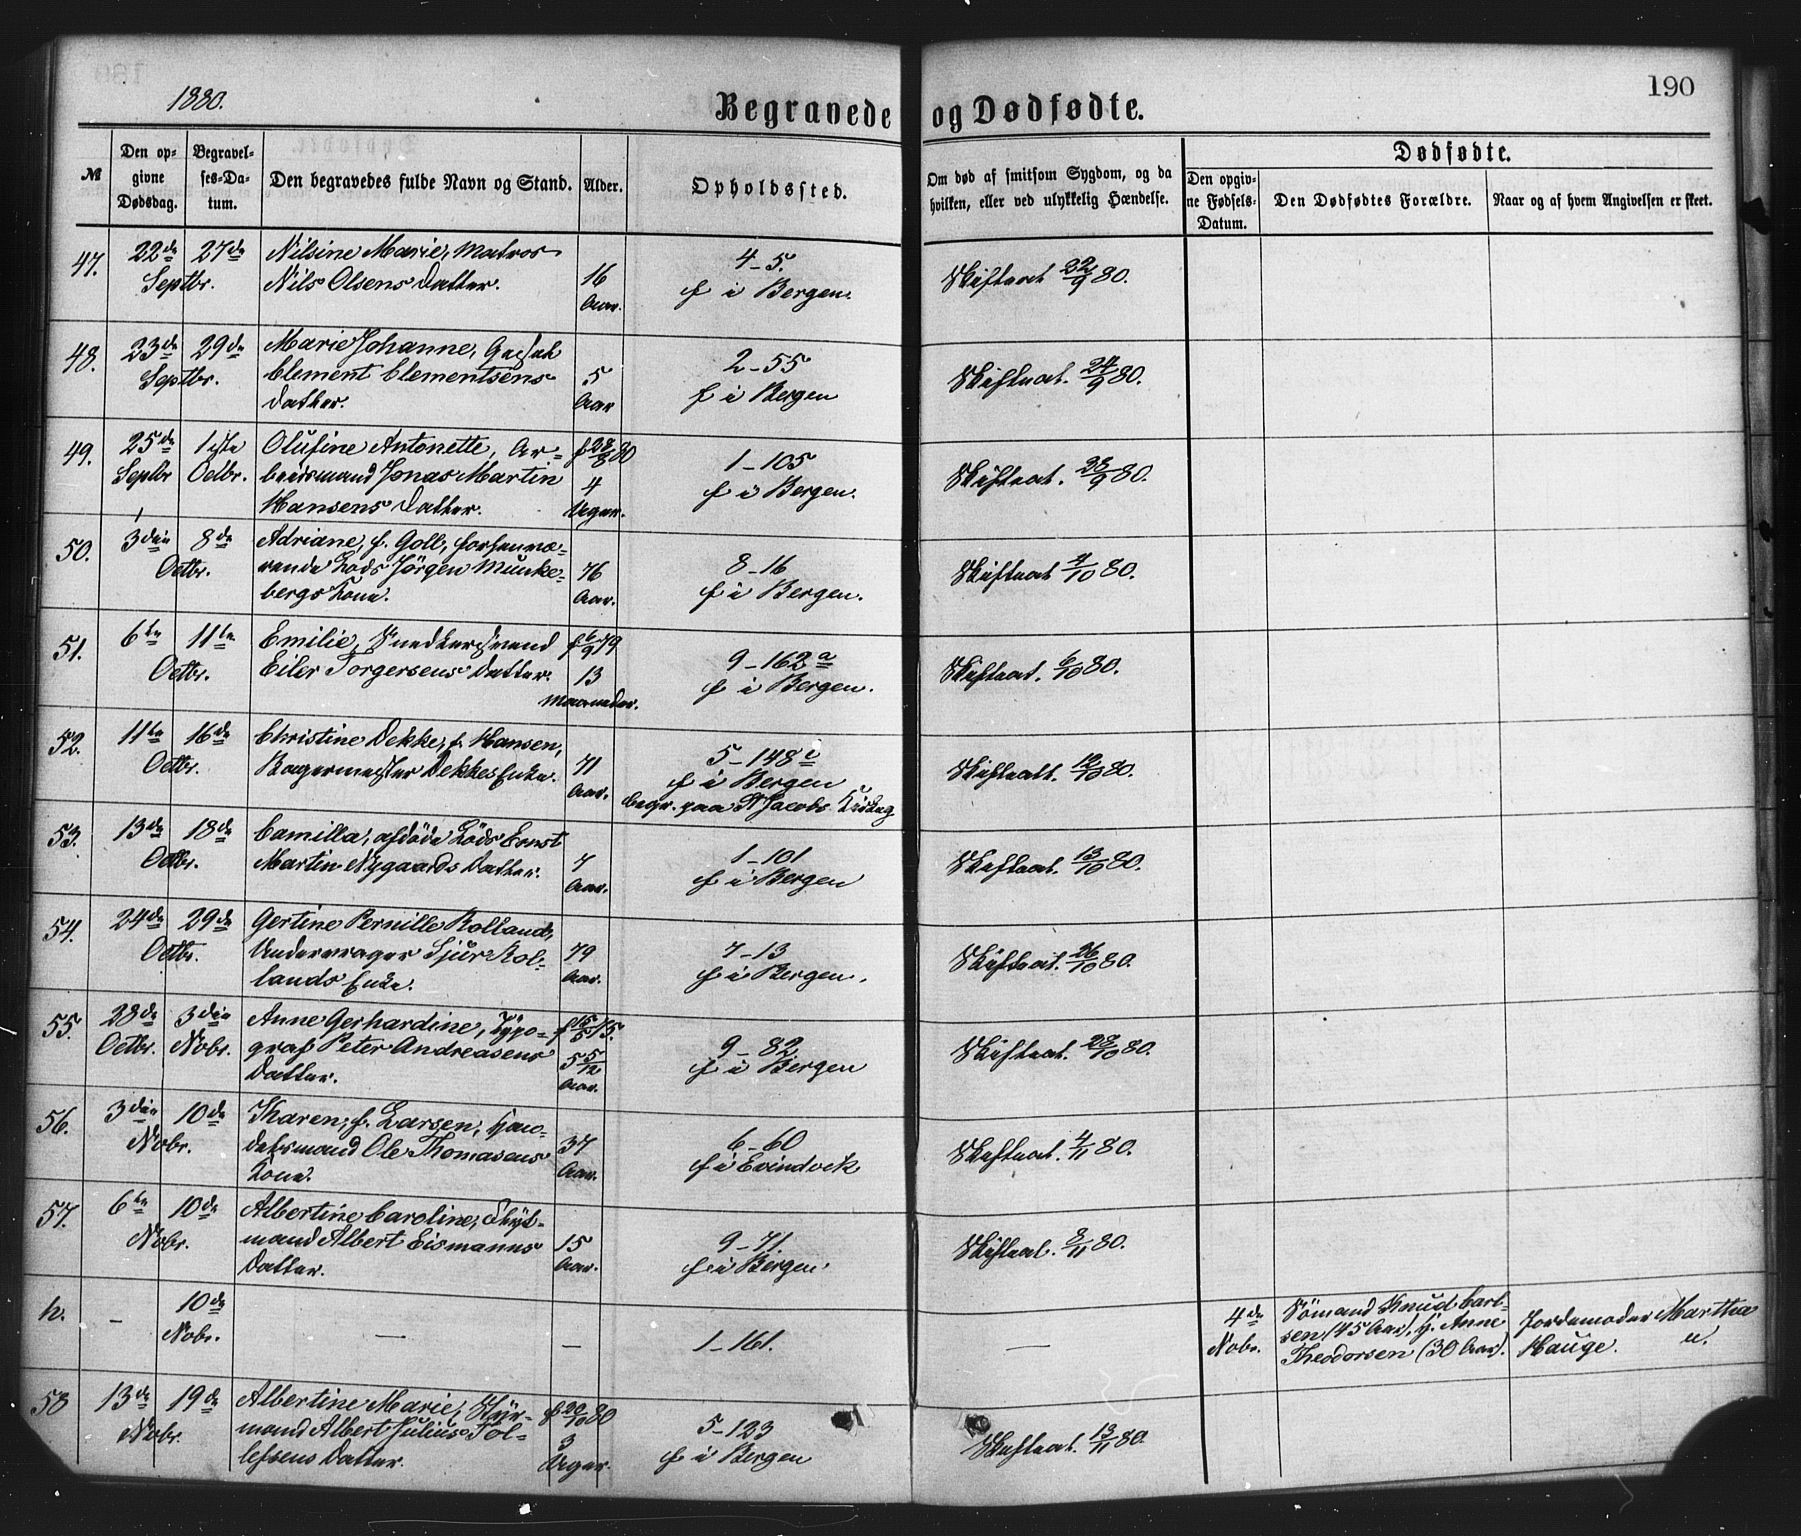 1880.
Begravede og Dødfødte.
190
№
Den opgivne Dødsdag.
Begravelses-Datum.
Den begravedes fulde Navn og Stand.
Alder.
Opholdssted.
Om død af smitsom Sygdom, og da hvilken, eller ved ulykkelig Hændelse.
Dødfødte.
Den opgivne Fødsels-Datum.
Den Dødfødtes Forældre.
Naar og af hvem Angivelsen er skeet.
47. 22de Septbr. 27de
Nilsine Marie, Matros
Nils Olsens Datter.
16 Aar.
4-5.
f i Bergen.
Skifteat 22/9 80.
48. 23de Septbr. 29de
Marie Johanne,
Clement Clementsens
Datter.
5 Aar
2-55
f i Bergen
Skifteat. 24/9 80.
49. 25de Septbr 1ste Octbr.
Olufine Antonette, Ar-
beidsmand Jonas Martin
Hansens Datter.
f 28/8 80
4 Uger.
1-105
f i Bergen.
Skifteat. 28/9 80.
50. 3die Octbr. 8de
Adriane, f. Goll, forhenvæ-
rende Lods Jörgen Munke-
bergs Kone.
76 Aar.
8-16
f i Bergen.
Skifteat 4/10 80.
51. 6te Octbr. 11te
Emilie, Snedkersvend
Eiler Torgersens Datter.
f 6/9 79
13 Maaneder.
9-162a
f i Bergen.
Skifteat. 6/10 80.
52. 11te Octbr. 16de
Christine Dekke, f. Hansen,
Bagermester Dekkes Enke.
71 Aar.
5-148c
f i Bergen
begr. paa St Jacobs Kirkeg
Skifteatt. 12/10 80.
53. 13de Octbr. 18de
Camilla, afdöde Lods Ernst
Martin Nygaards Datter.
7 Aar.
1-101
f i Bergen
Skifteat. 13/10 80.
54. 24de Octbr. 29de
Gertine Pernille Rolland,
Undervrager Sjur Rol-
lands Enke.
79 Aar.
7-13
f i Bergen.
Skifteat. 26/10 80.
55. 28de Octbr. 3die Nobr.
Anne Gerhardine, Typo-
graf Peter Andreasens
Datter.
f 15/5 75.
5 5/12 Aar.
9-82
f i Bergen
Skifteat. 28/10 80.
56. 3die Nobr. 10de
Karen, f. Larsen, Han-
delsmand Ole Thomasens
Kone.
37 Aar.
6-60
f i Evindvik
Skifteat. 4/11 80.
57. 6te Nobr. 10de
Albertine Caroline,
mand Albert Eismanns
Datter.
15 Aar.
9-71.
f i Bergen.
Skifteat. 8/11 80.
h. - 10de Nobr. - -
1-161.
-
4de Nobr.
Sömand Knud Carl-
sen (45 Aar), H. Anne
Theodorsen (30 Aar).
Jordemoder Marthea
Hauge.
58 13de Nobr. 19de
Albertine Marie, Styr-
mand Albert Julius Tol-
lefsens Datter.
f 20/10 80
3 Uger.
5-123
f i Bergen
Skifteat. 13/11 80.